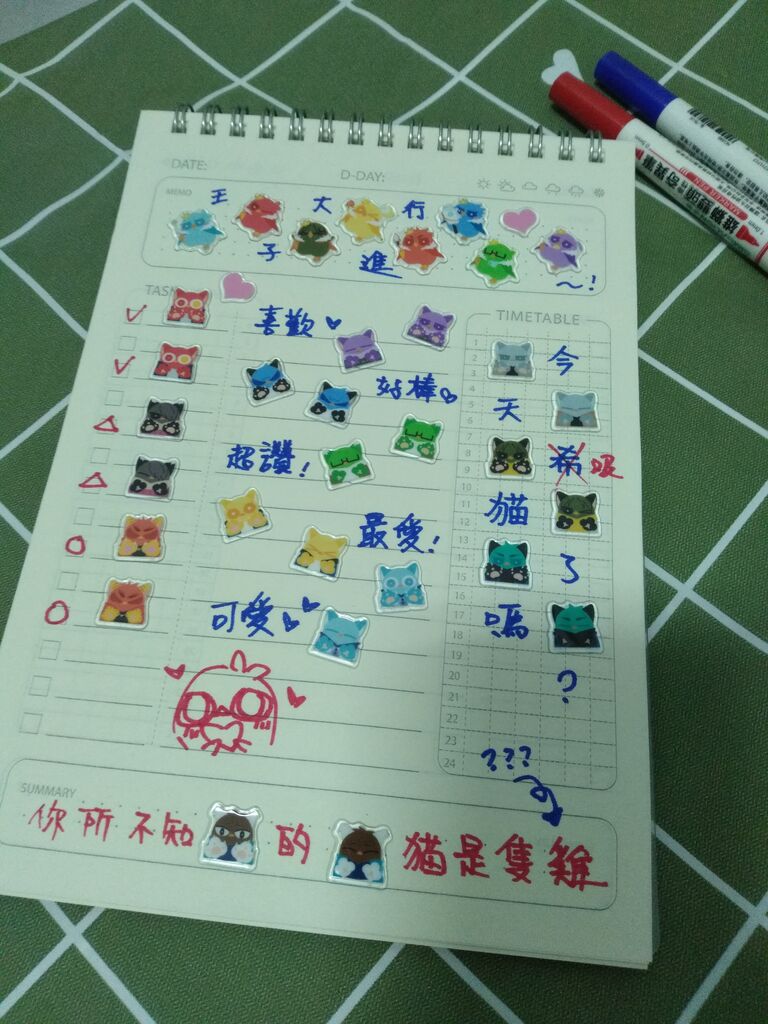 DATE:
D-DAY:
MEMO
王子大進行~!
TASK
喜歡
好棒
超讚!
最愛!
可愛
TIMETABLE
1
2
3
4
5
6
7
8
9
10
11
12
13
14
15
16
17
18
19
20
21
22
23
24
今
天
希 吸
猫
了
嗎
?
???
SUMMARY
你所不知的猫是隻雞
雄獅 奇異筆
MARKER PEN